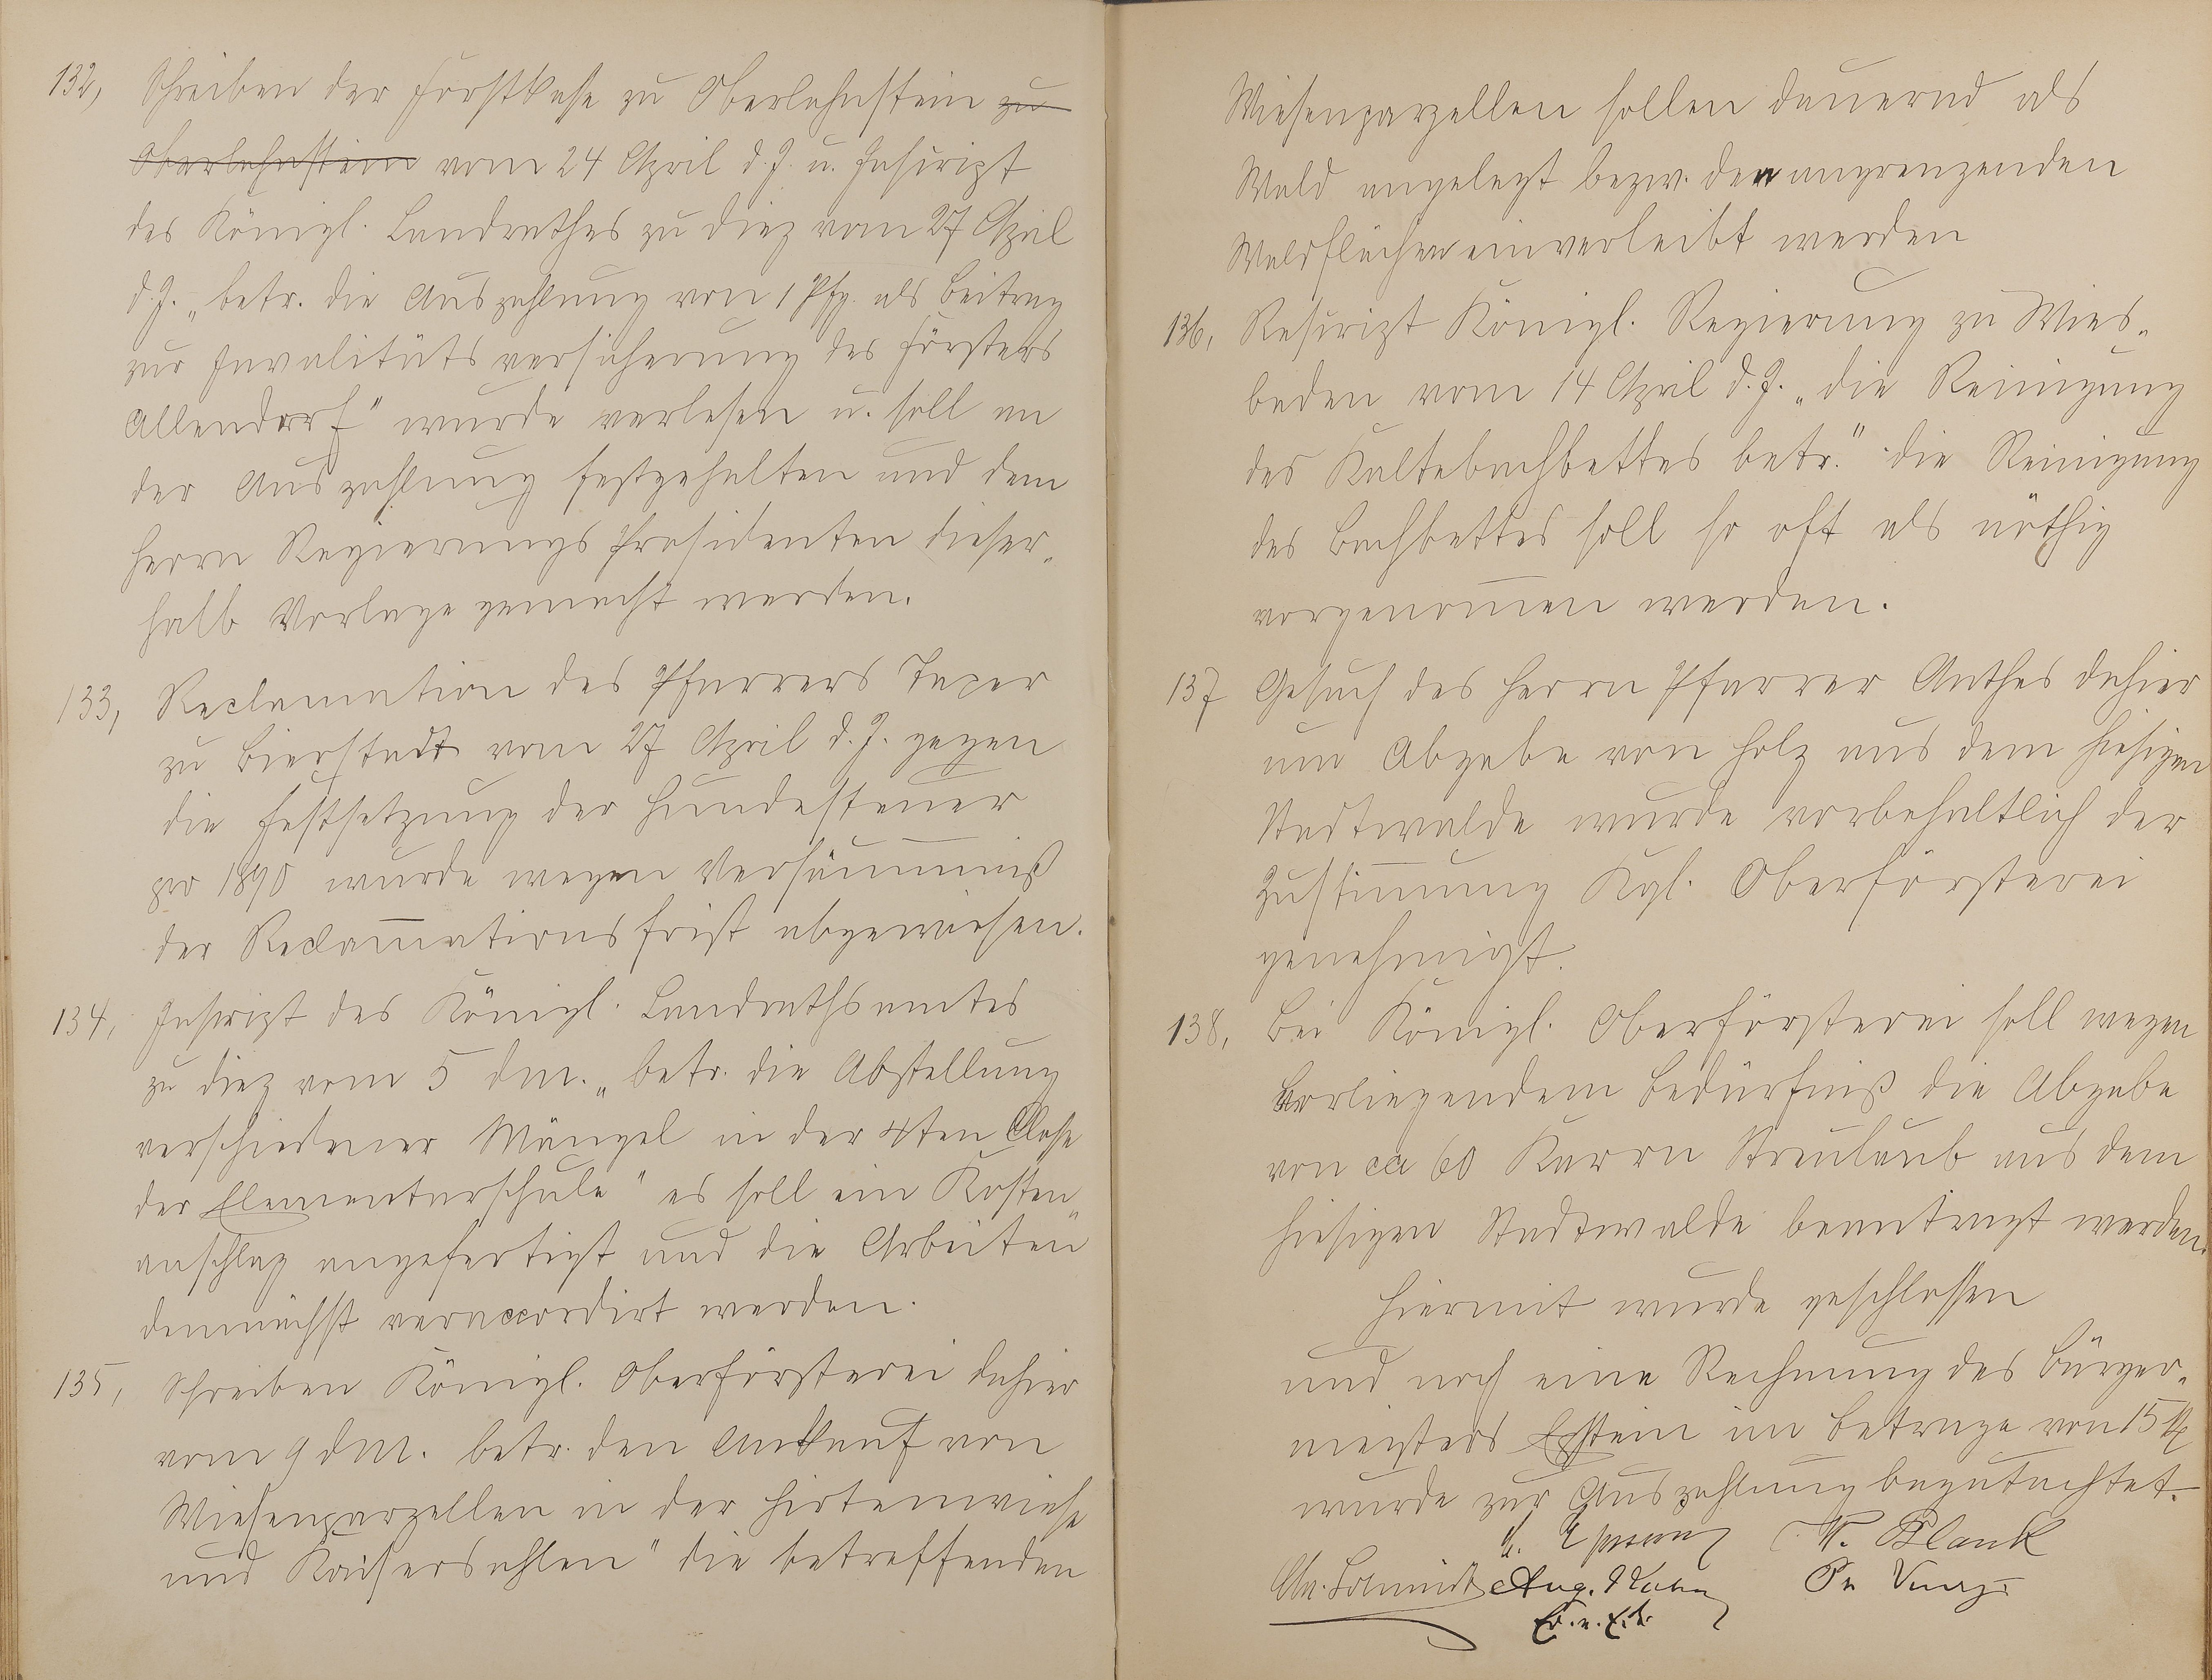 132, Schreiben der Forstkasse zu Oberlahnstein zu
Oberlahnstein vom 24 April d. J. u. Inscript
des Königl. Landrathes zu Diez vom 27 April
d. J. „betr. die Auszahlung von 1 Pfg. als Beitrag
zur Invalitätsversicherung des Försters
Allendorf" wurde verlesen u. soll an
der Auszahlung festgehalten und dem
Herrn Regierungs Präsidenten dieser-
halb Vorlage gemacht werden.
133, Reclamation des Pfarrers
zu Bierstadt vom 27 April d. J. gegen
die Festsetzung der Hundesteuer
pro 1890 wurde wegen Versäumniß
der Reclamationsfrist abgewiesen.
134, Inscript des Königl. Landrathsamtes
zu Diez vom 5 d M. „betr. die Abstellung
verschiedener Mängel in der 4ten Classe
der Elementarschule" es soll ein Kosten-
anschlag angefertigt und die Arbeiten
demnächst veraccordirt werden.
135, Schreiben Königl. Oberförsterei dahier
vom 9 d M. betr. den Ankauf von
Wiesenparzellen in der Hirtenwiese
und Kaisersahlen" die betreffenden
Wiesenparzellen sollen dauernd als
Wald angelegt bezw. den angrenzenden
Waldflächen einverleibt werden
136, Rescript Königl. Regierung zu Wies-
baden vom 14 April d. J. „die Reinigung
des Kaltebachbettes betr." die Reinigung
des Bachbettes soll so oft als nöthig
vorgenommen werden.
137 Gesuch des Herrn Pfarrer Anthes dahier
um Abgabe von Holz aus dem hiesigen
Stadtwalde wurde vorbehaltlich der
Zustimmung Kgl. Oberförsterei
genehmigt.
138, Bei Königl. Oberförsterei soll wegen
vorliegendem Bedürfniß die Abgabe
von ca 60 Karrn Streulaub aus dem
hiesigen Stadtwalde beantragt werden.
Hiermit wurde geschlossen
und noch eine Rechnung des Bürger-
meisters Epstein im Betrage von 15 M
wurde zur Auszahlung begutachtet.
W. Blank
Chr. Schmidt Aug.